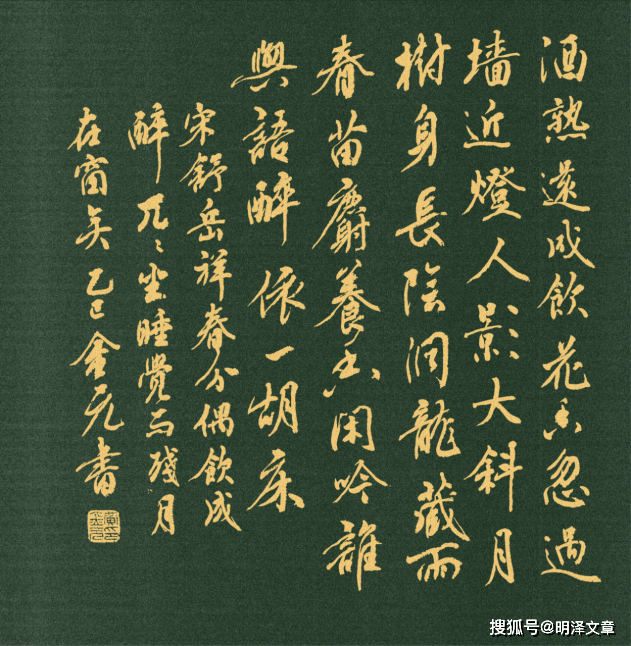 酒熟還成飲花香忽過
墙近燈人影大斜月
樹身長陰洞龍藏雨
春苗麝養香閑吟誰
與語醉依一胡床
宋舒岳祥春分偶飲成
醉兀〻坐睡覺而殘月
在窗矣乙巳金元書
搜狐号@明泽文章